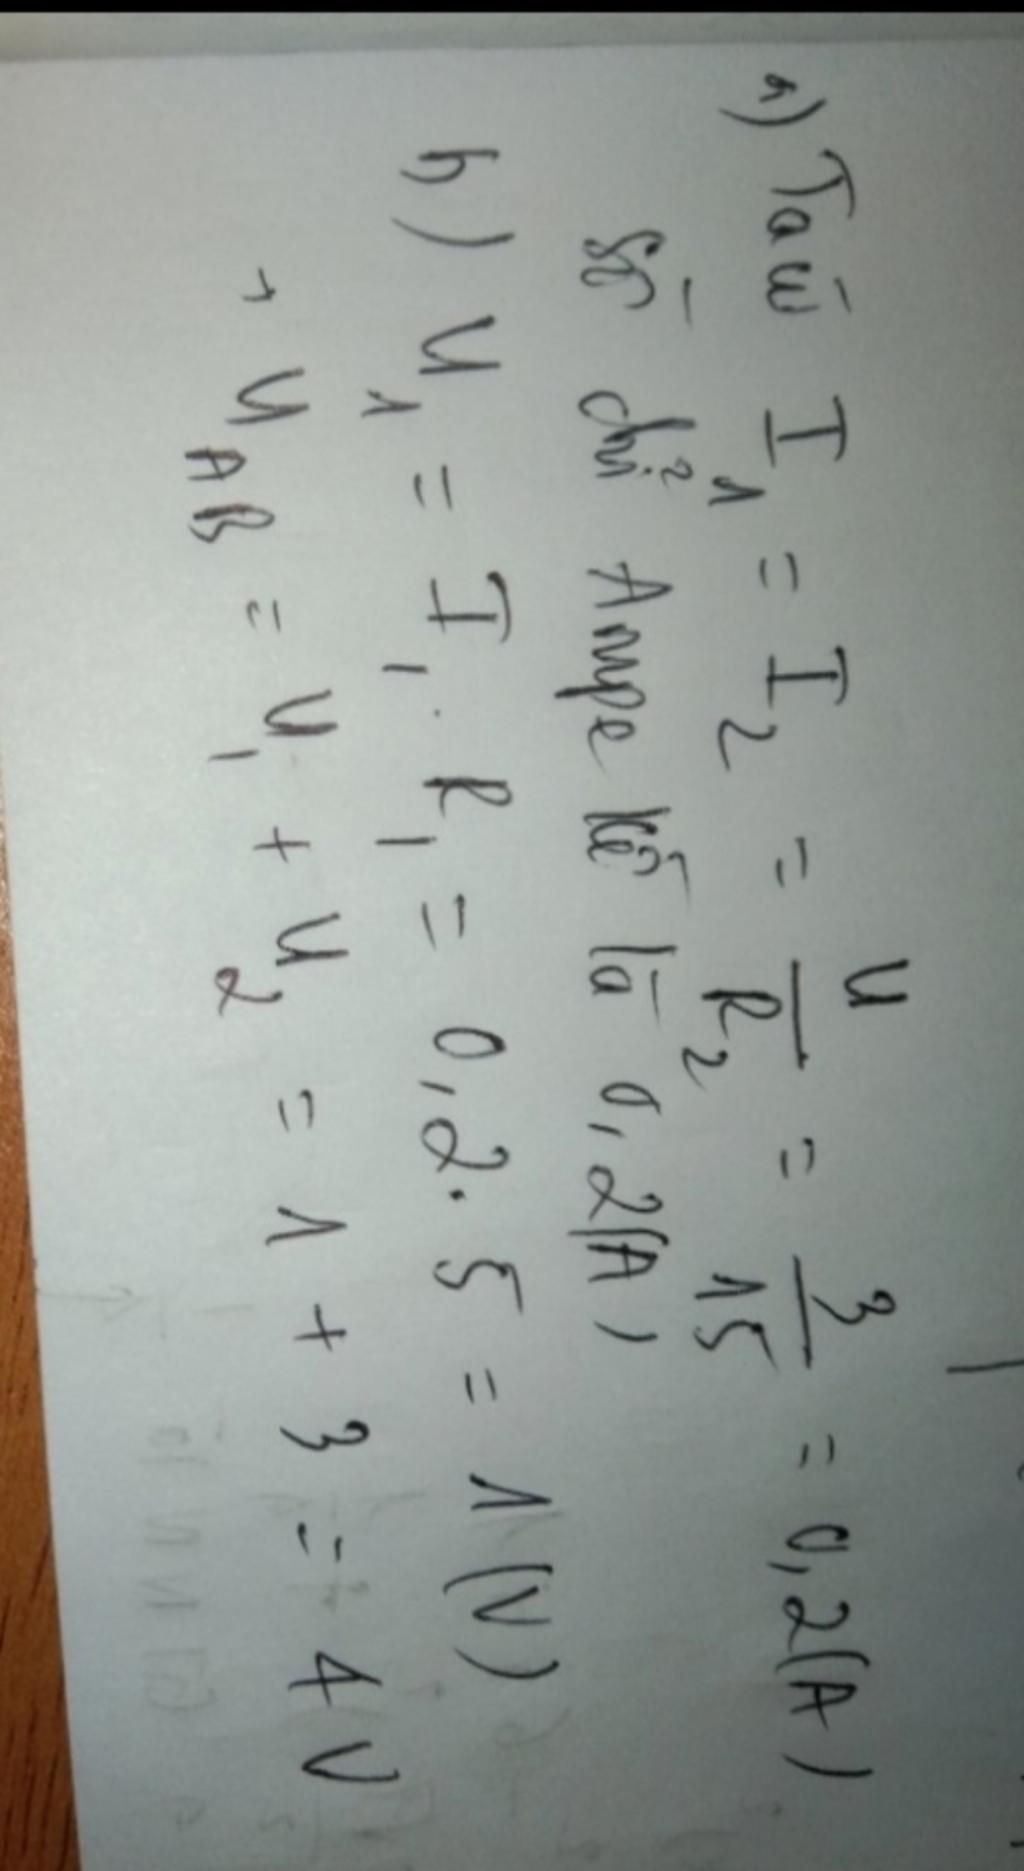 a) Ta có I1 = I2 = U/R2 = 3/15 = 0,2(A)
Số chỉ Ampe kế là 0,2(A)
b) U1 = I1 . R1 = 0,2 . 5 = 1 (V)
, UAB = U1 + U2 = 1 + 3 = 4V